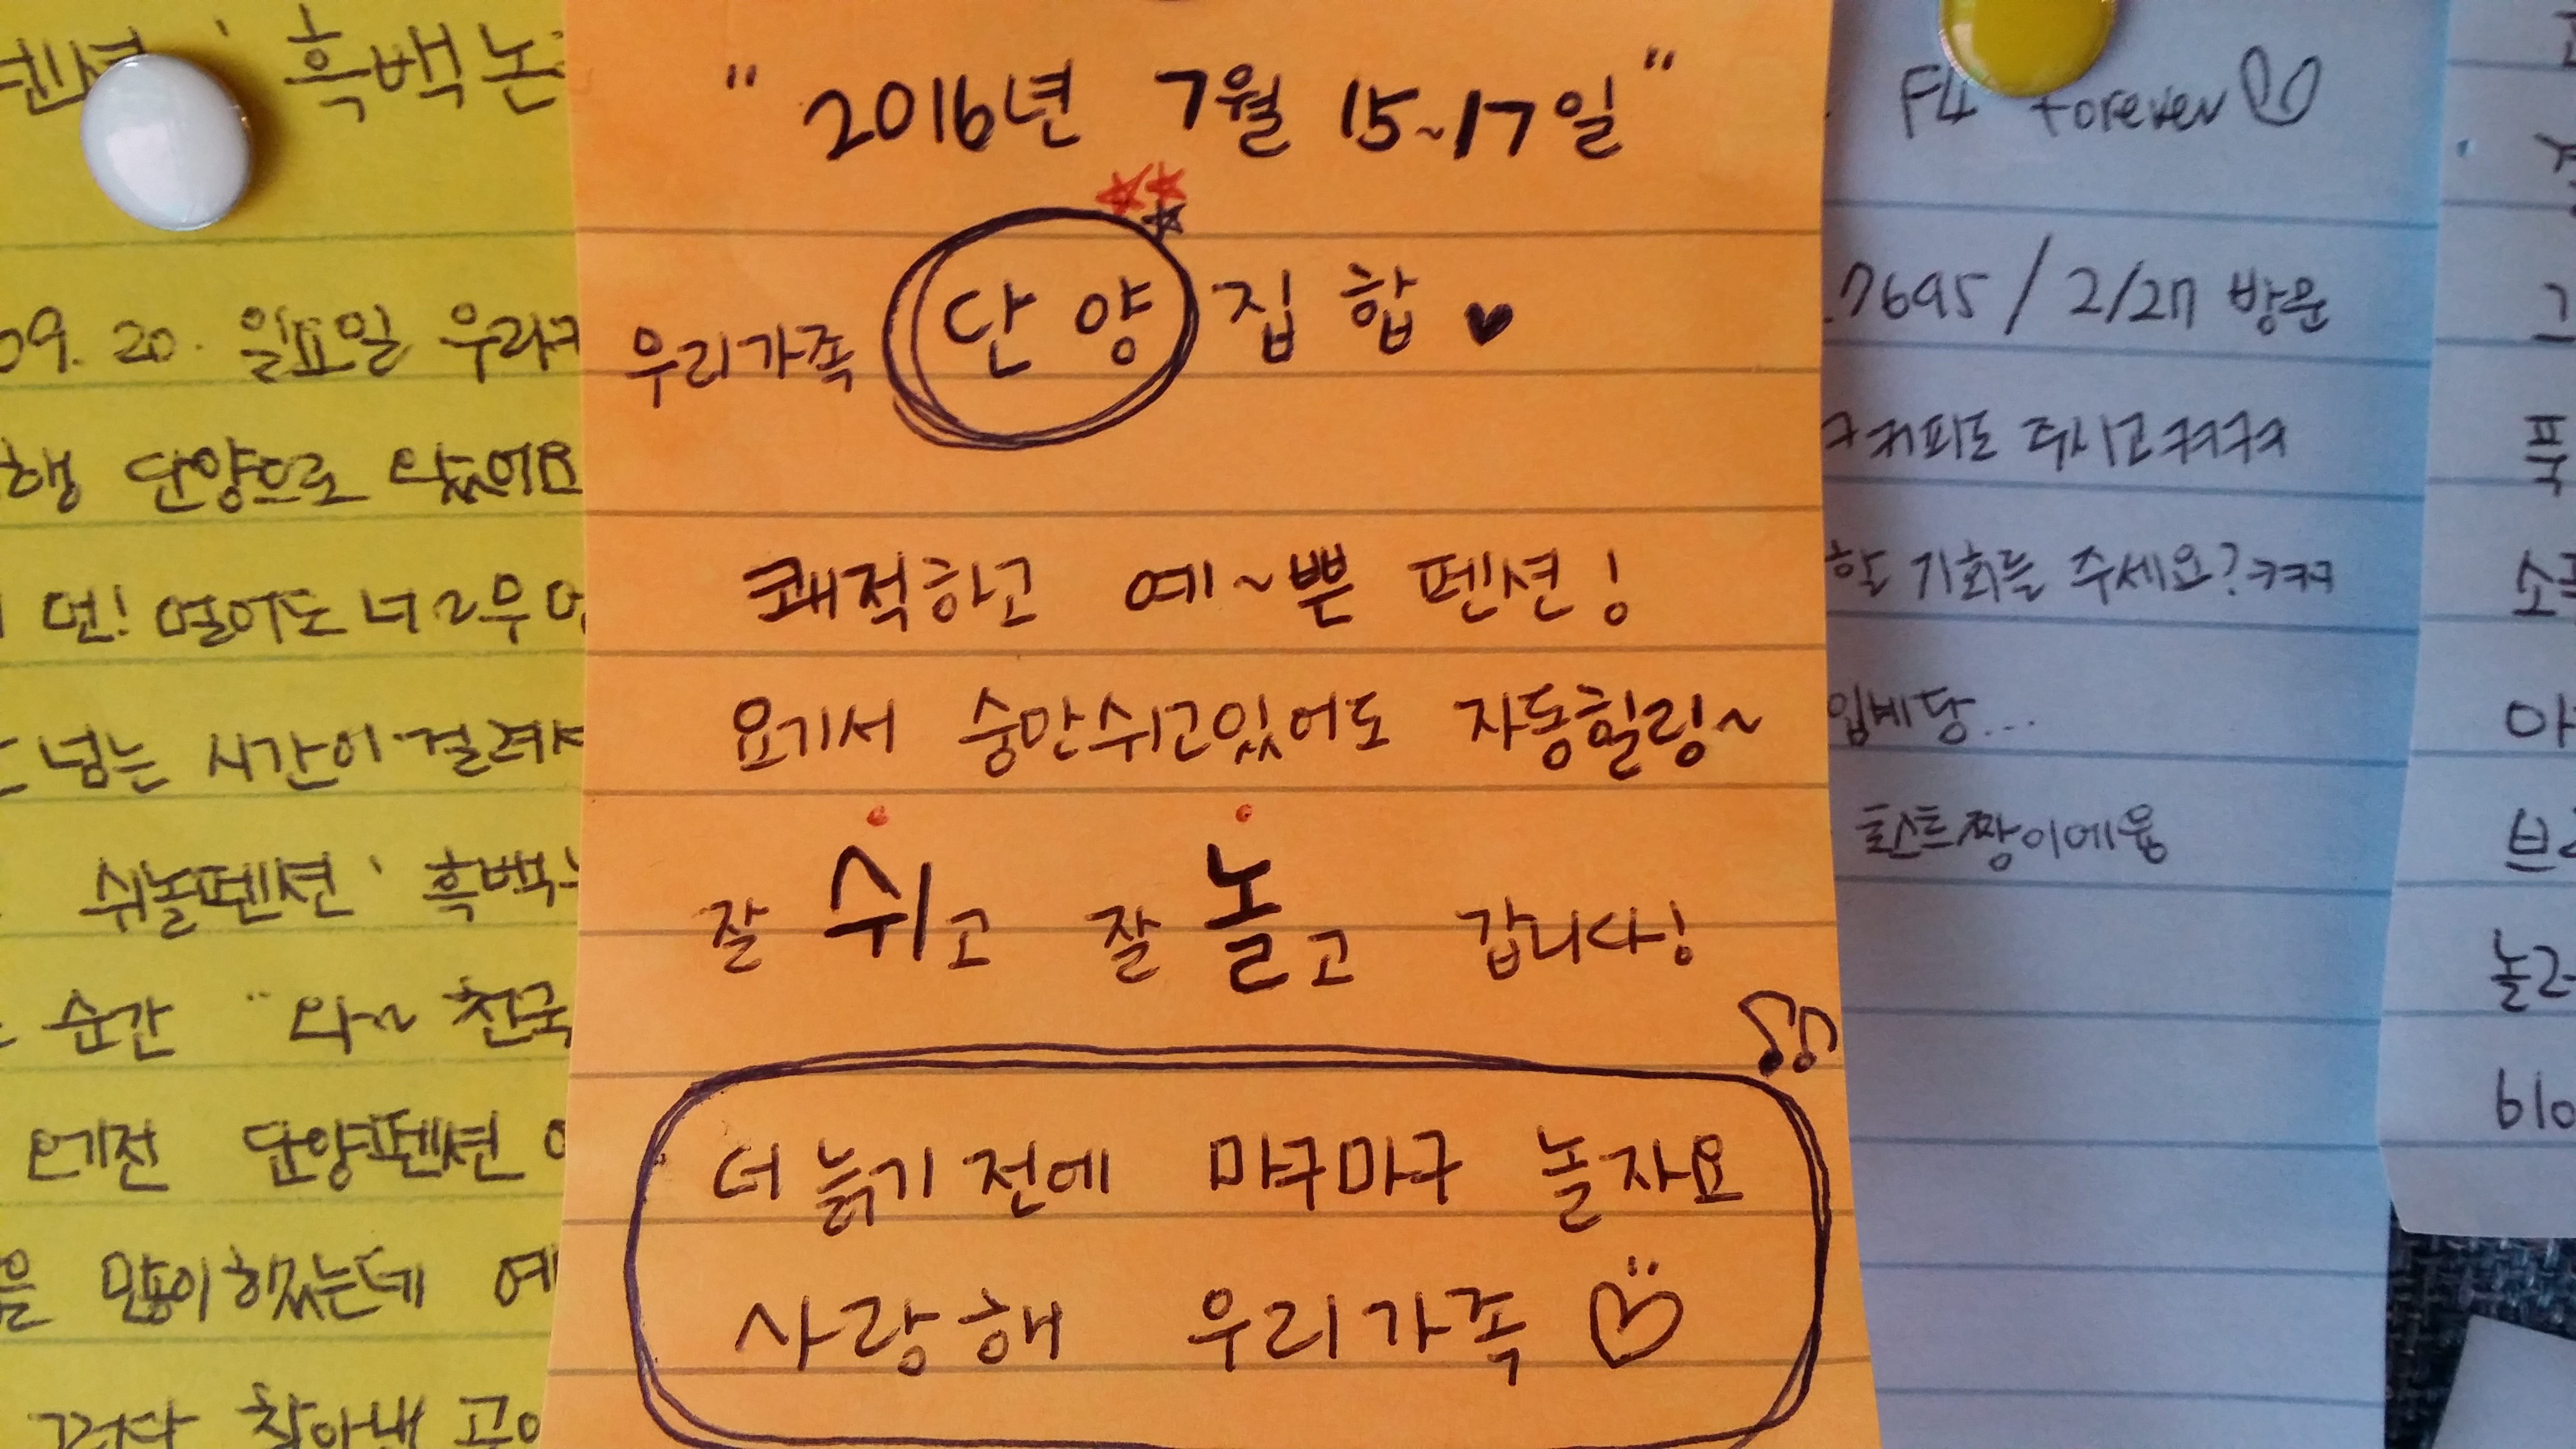 흑백논
09. 20. 일요일 우리
단양으로 왔어요
넘는 시간이 걸려서
쉬놀펜션' 흑백
순간 "와~ 천국
예전 단양펜션
많이 했는데 예
찾아낸
"2016년 7월 15~17일"
우리가족 단양 집합 ♥
쾌적하고 예~쁜 펜션!
요기서 숭만쉬고있어도 자동힐링~
잘 쉬고 잘 놀고 갑니다!
더 늙기 전에 마구마구 놀자요
사랑해 우리가족 ♡
F4 forever ♡
7695 / 2/27 방문
커피도 주시고ㅋㅋㅋㅋ
할 기회를 주세요? ㅋㅋㅋ
입베당...
짱이에용